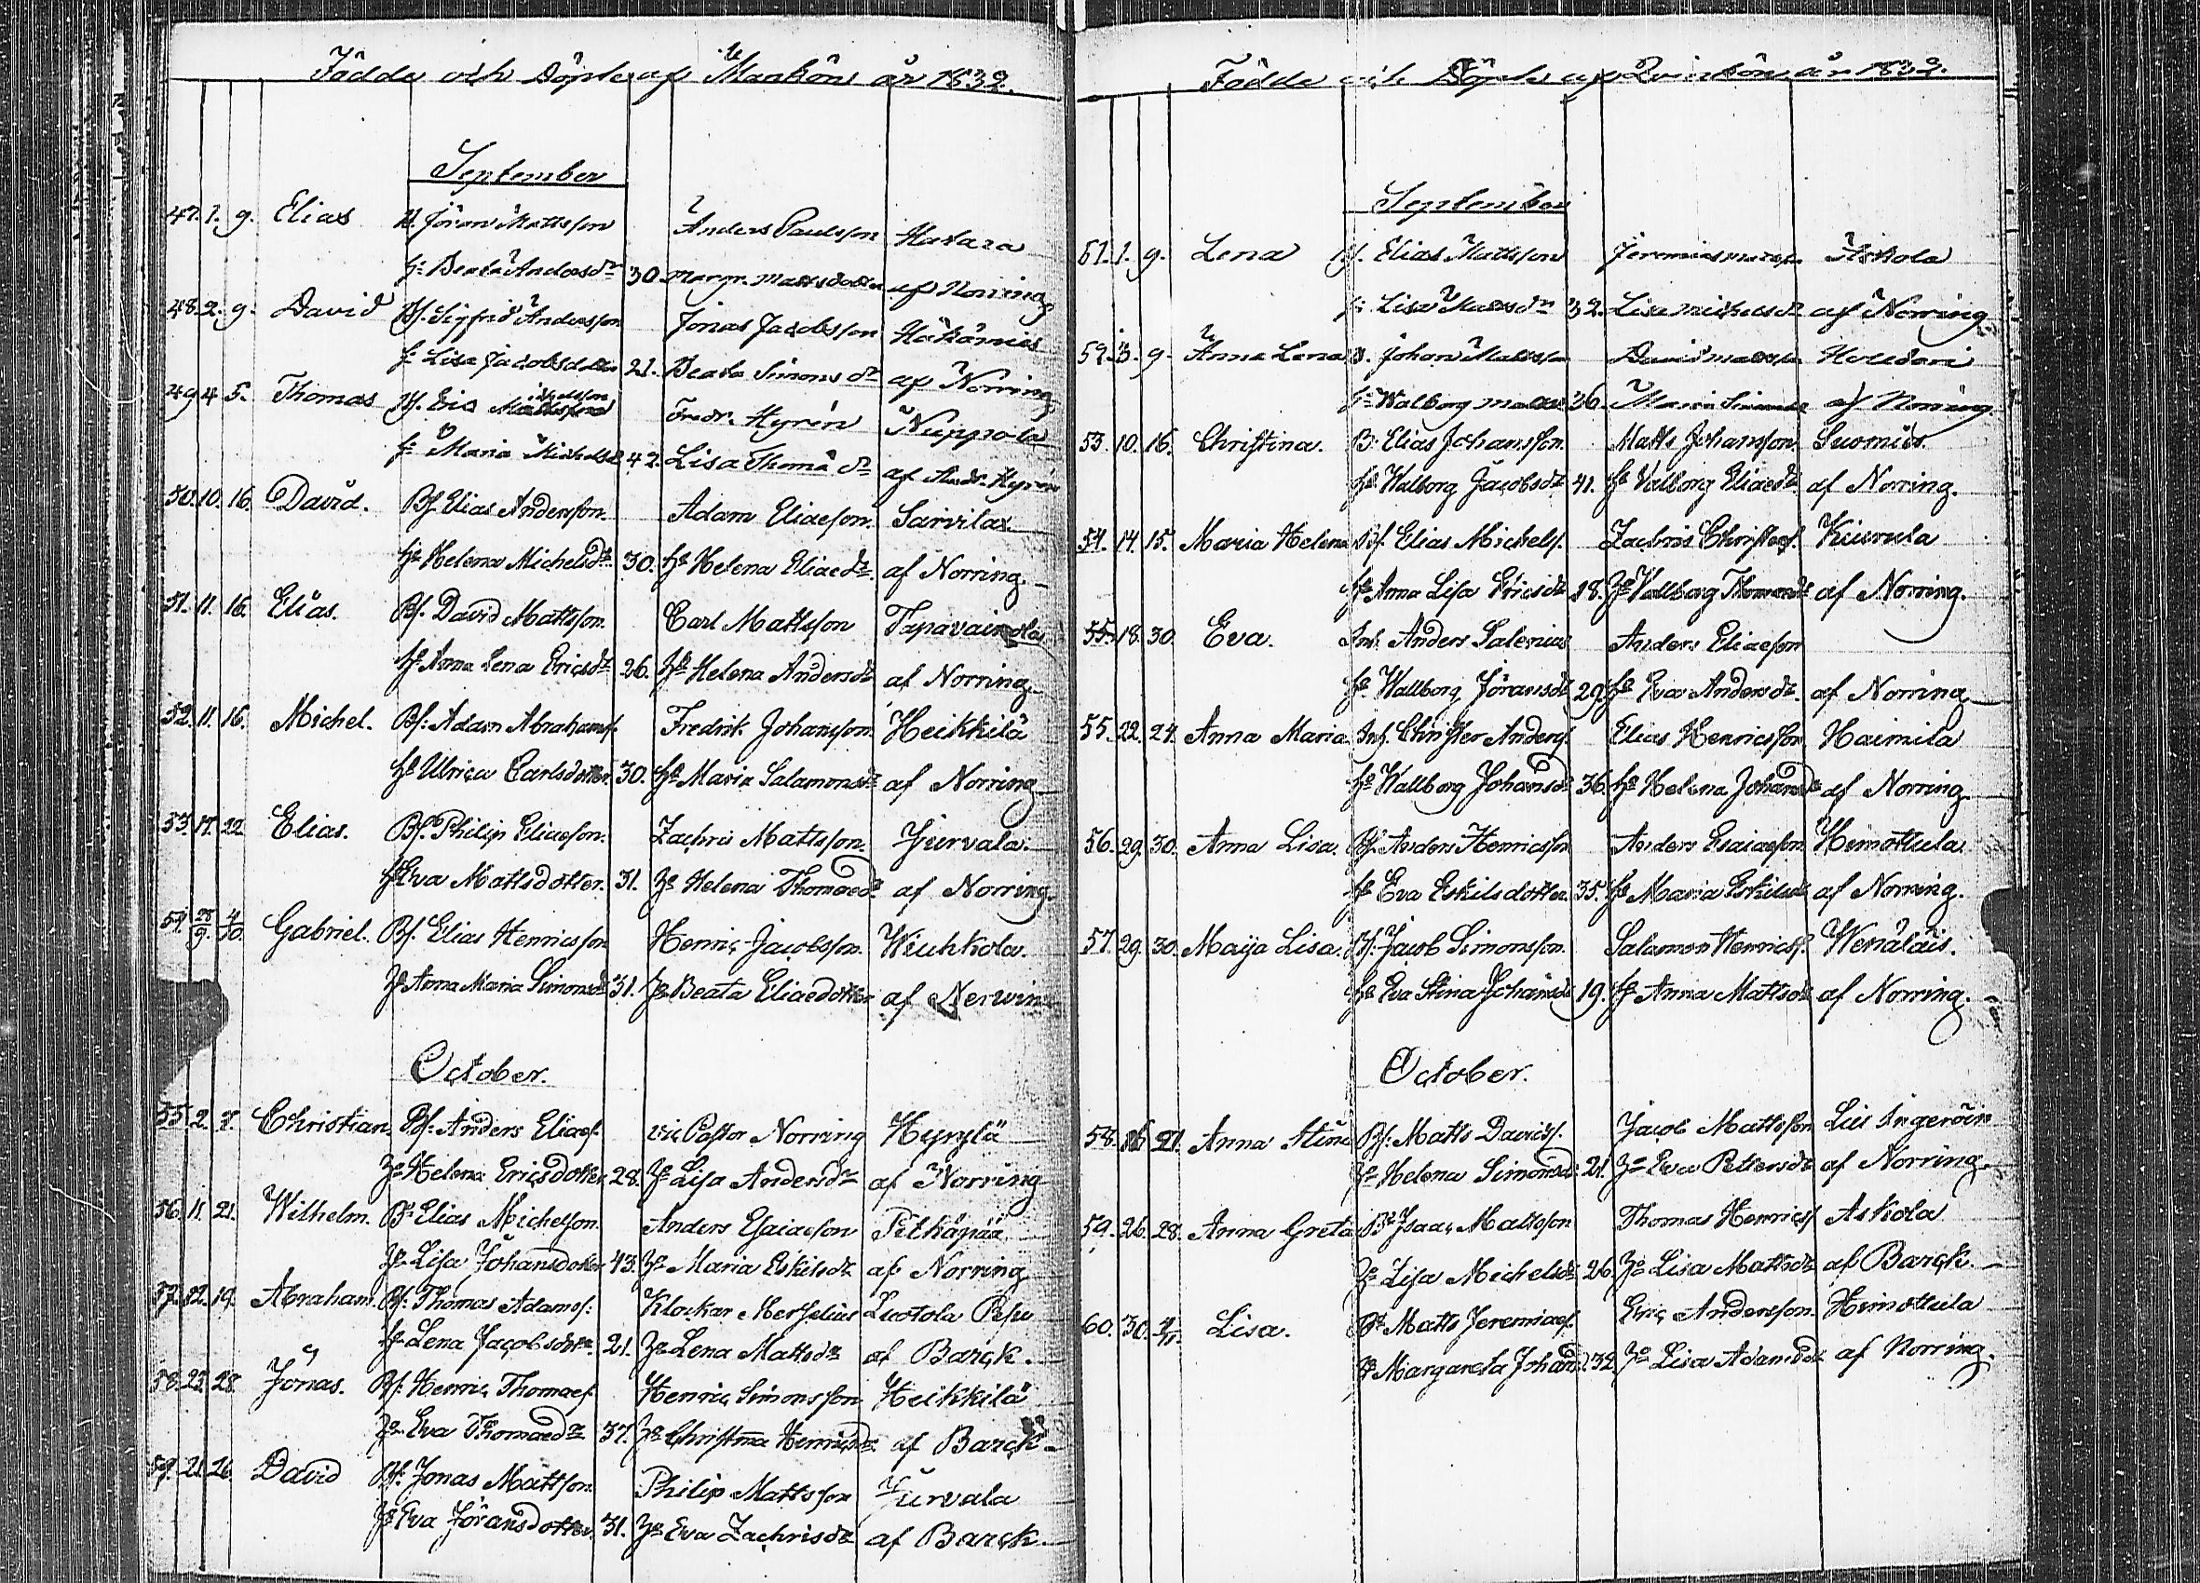 Födde och Döpte af Mankön år 1832.
September
47. 1. 9. Elias B. Jöran Mattsson Anders Paulsson Hatara
h: Beata Andersdr 30. Margr. Mattsdotter af Norring
48. 2. 9. David Bf. Sigfrid Andersson Jonas Jacobsson
h: Lisa Jacobsdotter 21. Beata Simonsdr af Norring
49 4 5. Thomas Bf. Eric Fredr. Hyrén Nuppola
h: Maria Michelsd 42. Lisa Thomædr af Fredr. Hyrén
50. 10. 16. David. Bf Elias Andersson. Adam Eliaeson. Sarvilax
hu Helena Michelsdr 30. hu Helena Eliaedr. af Norring.
51. 11. 16. Elias. Bf. David Mattsson. Carl Mattsson
hu Anna Lena Ericsdr 26. hu Helena Andersdr af Norring.
52. 11. 16. Michel. Bf. Adam Abrahamss. Fredrik Johansson Heikkilä
hu Ulrica Carlsdotter. 30. hu Maria Salamonsdr af Norring
53. 17. 22. Elias. Bf. Philip Eliaeson. Zachris Mattsson. Yurvala.
hu Eva Mattsdotter. 31. hu Helena Thomaedr af Norring.
54. 28/9. 4/10. Gabriel. Bf. Elias Henricsson Henric Jacobsson. Wiuhkola.
hu Anna Maria Simonsdr 31. hu Beata Eliaedotter af
October.
55. 2. 7. Christian. Bf. Anders Eliaes. vic Pastor Norring Hyrylä
hu Helena Ericsdotter 28. hu Lisa Andersdr af Norring
56. 11. 21. Wilhelm. Bf Elias Michelsson. Anders Esaiaeson Pitkäpää
hu Lisa Johansdotter 43. hu Maria Eskilsdr af Norring
57. 12. 19. Abraham. Bf. Thomas Adams. Klockar Merselius
hu Lena Jacobsdotr. 21. hu Lena Mattsdr af Barck.
58. 23. 28. Jonas. Bf. Henric Thomaes. Henric Simonsson Heikkilä
hu Eva Thomaedr 37. hu Christina Henricsdr. af Barck
59. 21. 26. David Bf. Jonas Mattsson. Philip Mattsson Yurvala
hu Eva Göransdotter. 31. hu Eva Zachrisdr af Barck
Födde och Döpte af Qvinkön år 1832.
September
51. 1. 9. Lena Bf. Elias Mattsson Jeremias Askola
h: Lisa Mattsdr 32. Lisa Michelsdr af Norring
52. 3. 9. Anna Lena B. Johan Mattsson David Mattsson
hu Walborg 26. Maria af Norring
53. 10. 16. Christina. B. Elias Johansson. Matts Johansson.
hu Walborg Jacobsdr 41. hu Valborg Eliaedr. af Norring.
54. 14. 15. Maria Helena Bf. Elias Michels. Zachris Kiurula
hu Anna Lisa Ericsdr 18. hu Vallborg Thomaedr af Norring.
55. 18. 30. Eva. Inh. Anders Salenius Anders Eliaeson
hu Wallborg Jöransdr 29. hu Eva Andersdr. af Norring
55. 22. 24. Anna Maria Inh. Christer Anders. Elias Henricsson Haimila
hu Wallborg Johansdr 36. hu Helena Johansdr af Norring.
56. 29. 30. Anna Lisa. Bf. Anders Henricsson Anders Esaiaeson Heimottula.
hu Eva Eskilsdotter. 35. hu Maria Eskilsdr af Norring.
57. 29. 30. Maija Lisa. Bf. Jacob Simonsson. Salamon Henricss. Wenäläis.
hu Eva Stina Johansdr 19. hu Anna Mattsdr af Norring.
October.
58. 16 21. Anna Stina Bf. Matts Davids. Jacob Mattsson
hu Helena Simonsdr. 21. hu Eva Petersdr af Norring.
59. 26. 28. Anna Greta Bf Isaac Mattsson Thomas Henrics Askola
hu Lisa Michelsdr 26. hu Lisa Mattsdr af Barck.
60. 30. Lisa. Bf Matts Jeremiaes. Eric Andersson. Heimottula
hu Margareta Johansd. 32. hu Lisa Adamsdr af Norring.